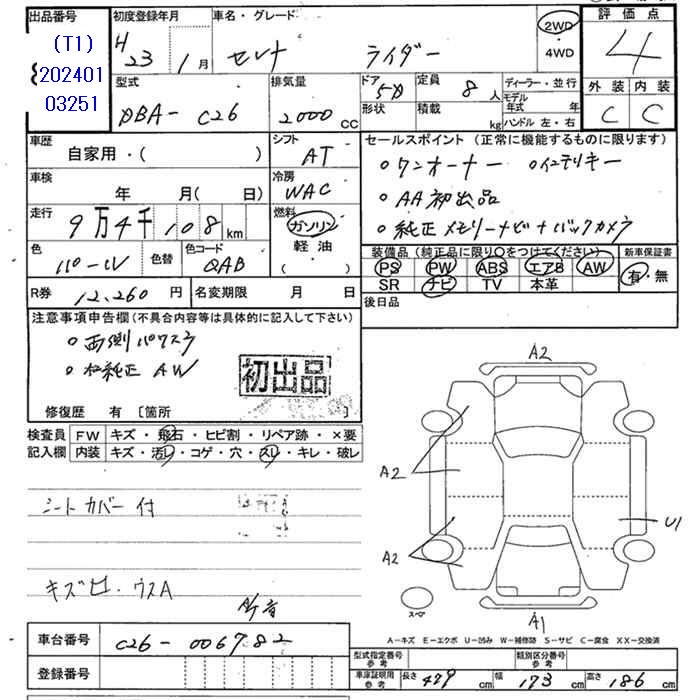 出品番号 初度登録年月 車名・グレード 評価点
(T1) H 23年 1月 セレナ ライダー 2WD・4WD 4
202401
03251
型式 排気量 ドア 定員 ディーラー・並行 外装 内装
DBA-C26 2000 CC 5D 8人 モデル年式 年 C C
形状 積載 kg ハンドル 左・右
車歴 シフト セールスポイント (正常に機能するものに限ります)
自家用・( ) AT
○ワンオーナー ○インテリキー
車検 冷房
年 月( 日) WAC ○AA初出品
走行 燃料
9万4千108km ガソリン ○純正メモリーナビ+バックカメラ
軽油
( )
色 色替 色コード 装備品 (純正品に限り○をつけてください) 新車保証書
パール QAB PS PW ABS エアB AW 有・無
SR ナビ TV 本革
R券 12,260円 名変期限 月 日 後日品
注意事項申告欄(不具合内容等は具体的に記入して下さい)
○両側パワスラ
○社外純正 AW
初出品
修復歴 有 [箇所 ]
検査員 FW キズ・飛石・ヒビ割・リペア跡・×要
記入欄 内装 キズ・汚レ・コゲ・穴・スレ・キレ・破レ
シートカバー付
キズヒ、ウスA
A2
A2
U1
A2
スペア
A1
A-キズ E-エクボ U-凹み W-補修跡 S-サビ C-腐食 XX-交換済
車台番号 C26-006782
型式指定番号 参考 類別区分番号 参考
登録番号 車庫証明用 参考 長さ 479cm 幅 173cm 高さ 186cm